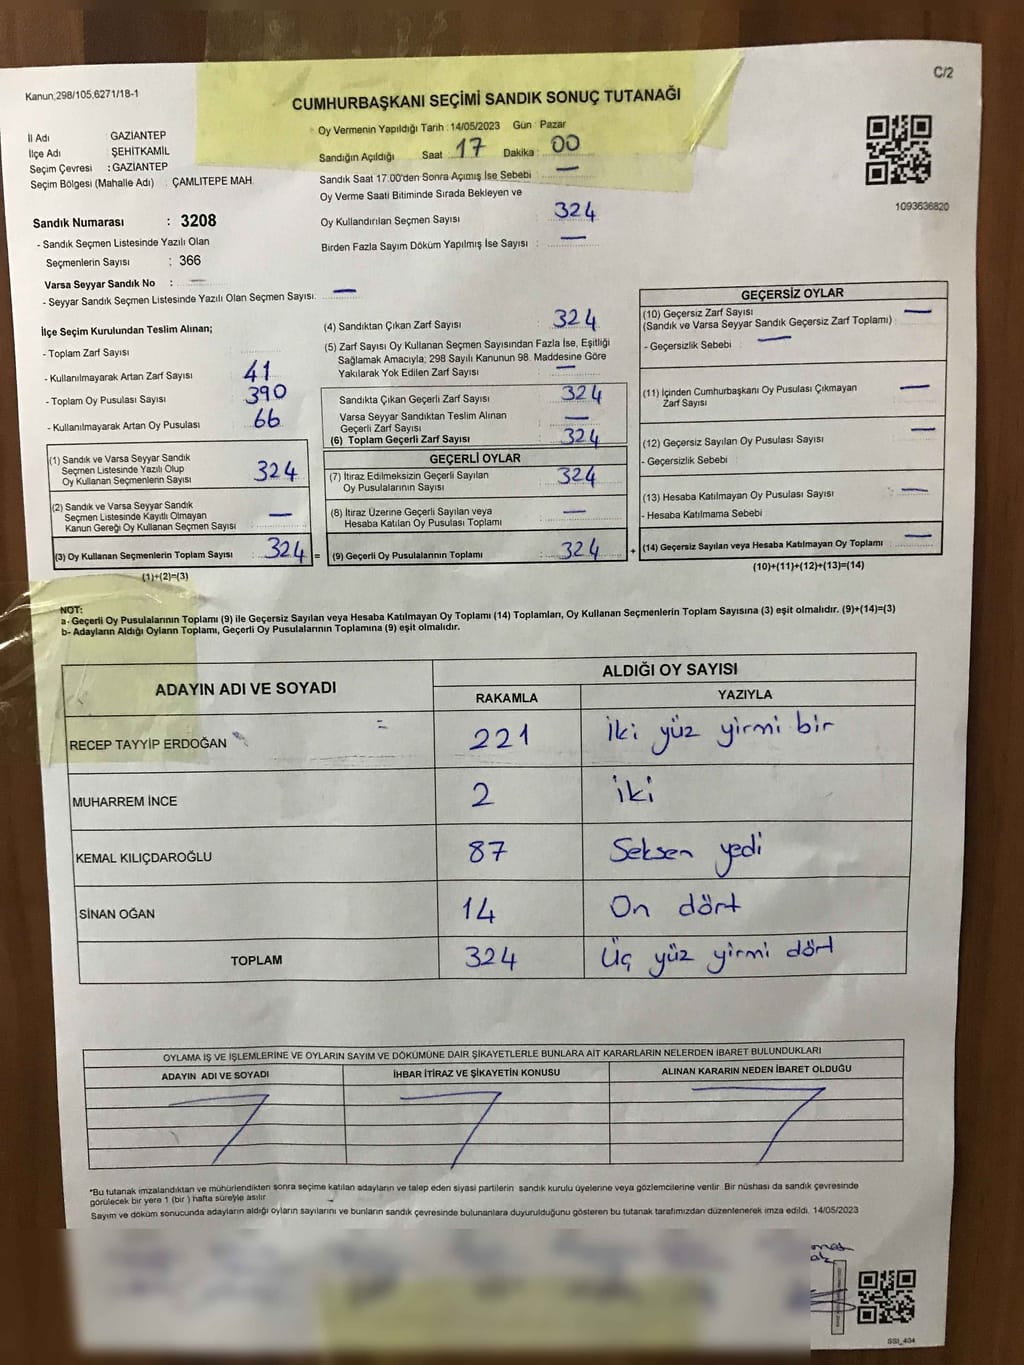 C/2
Kanun;298/105,6271/18-1
CUMHURBAŞKANI SEÇİMİ SANDIK SONUÇ TUTANAĞI
İl Adı : GAZİANTEP
İlçe Adı : ŞEHİTKAMİL
Seçim Çevresi : GAZİANTEP
Seçim Bölgesi (Mahalle Adı) : ÇAMLITEPE MAH.
Oy Vermenin Yapıldığı Tarih : 14/05/2023 Gün : Pazar
Sandığın Açıldığı Saat : 17 Dakika : 00
Sandık Saat 17.00'den Sonra Açımış İse Sebebi : —
Oy Verme Saati Bitiminde Sırada Bekleyen ve
Oy Kullandırılan Seçmen Sayısı : 324
Birden Fazla Sayım Döküm Yapılmış İse Sayısı : —
1093636820
Sandık Numarası : 3208
- Sandık Seçmen Listesinde Yazılı Olan
Seçmenlerin Sayısı : 366
Varsa Seyyar Sandık No : —
- Seyyar Sandık Seçmen Listesinde Yazılı Olan Seçmen Sayısı: —
İlçe Seçim Kurulundan Teslim Alınan;
- Toplam Zarf Sayısı
- Kullanılmayarak Artan Zarf Sayısı 41
- Toplam Oy Pusulası Sayısı 390
- Kullanılmayarak Artan Oy Pusulası 66
(1) Sandık ve Varsa Seyyar Sandık
Seçmen Listesinde Yazılı Olup
Oy Kullanan Seçmenlerin Sayısı 324
(2) Sandık ve Varsa Seyyar Sandık
Seçmen Listesinde Kayıtlı Olmayan
Kanun Gereği Oy Kullanan Seçmen Sayısı —
(3) Oy Kullanan Seçmenlerin Toplam Sayısı 324 =
(1)+(2)=(3)
(4) Sandıktan Çıkan Zarf Sayısı 324
(5) Zarf Sayısı Oy Kullanan Seçmen Sayısından Fazla İse, Eşitliği
Sağlamak Amacıyla; 298 Sayılı Kanunun 98. Maddesine Göre
Yakılarak Yok Edilen Zarf Sayısı —
Sandıkta Çıkan Geçerli Zarf Sayısı 324
Varsa Seyyar Sandıktan Teslim Alınan
Geçerli Zarf Sayısı —
(6) Toplam Geçerli Zarf Sayısı 324
GEÇERLİ OYLAR
(7) İtiraz Edilmeksizin Geçerli Sayılan
Oy Pusulalarının Sayısı 324
(8) İtiraz Üzerine Geçerli Sayılan veya
Hesaba Katılan Oy Pusulası Toplamı —
(9) Geçerli Oy Pusulalarının Toplamı 324 +
GEÇERSİZ OYLAR
(10) Geçersiz Zarf Sayısı
(Sandık ve Varsa Seyyar Sandık Geçersiz Zarf Toplamı) : —
- Geçersizlik Sebebi : —
(11) İçinden Cumhurbaşkanı Oy Pusulası Çıkmayan
Zarf Sayısı —
(12) Geçersiz Sayılan Oy Pusulası Sayısı —
- Geçersizlik Sebebi :
(13) Hesaba Katılmayan Oy Pusulası Sayısı —
- Hesaba Katılmama Sebebi
(14) Geçersiz Sayılan veya Hesaba Katılmayan Oy Toplamı —
(10)+(11)+(12)+(13)=(14)
NOT:
a- Geçerli Oy Pusulalarının Toplamı (9) ile Geçersiz Sayılan veya Hesaba Katılmayan Oy Toplamı (14) Toplamları, Oy Kullanan Seçmenlerin Toplam Sayısına (3) eşit olmalıdır. (9)+(14)=(3)
b- Adayların Aldığı Oyların Toplamı, Geçerli Oy Pusulalarının Toplamına (9) eşit olmalıdır.
ADAYIN ADI VE SOYADI ALDIĞI OY SAYISI
RAKAMLA YAZIYLA
RECEP TAYYİP ERDOĞAN 221 İki yüz yirmi bir
MUHARREM İNCE 2 İki
KEMAL KILIÇDAROĞLU 87 Seksen yedi
SİNAN OĞAN 14 On dört
TOPLAM 324 Üç yüz yirmi dört
OYLAMA İŞ VE İŞLEMLERİNE VE OYLARIN SAYIM VE DÖKÜMÜNE DAİR ŞİKAYETLERLE BUNLARA AİT KARARLARIN NELERDEN İBARET BULUNDUKLARI
ADAYIN ADI VE SOYADI İHBAR İTİRAZ VE ŞİKAYETİN KONUSU ALINAN KARARIN NEDEN İBARET OLDUĞU
*Bu tutanak imzalandıktan ve mühürlendikten sonra seçime katılan adayların ve talep eden siyasi partilerin sandık kurulu üyelerine veya gözlemcilerine verilir. Bir nüshası da sandık çevresinde
görülecek bir yere 1 (bir ) hafta süreyle asılır.
Sayım ve döküm sonucunda adayların aldığı oyların sayılarını ve bunların sandık çevresinde bulunanlara duyurulduğunu gösteren bu tutanak tarafımızdan düzenlenerek imza edildi. 14/05/2023
SSI_404